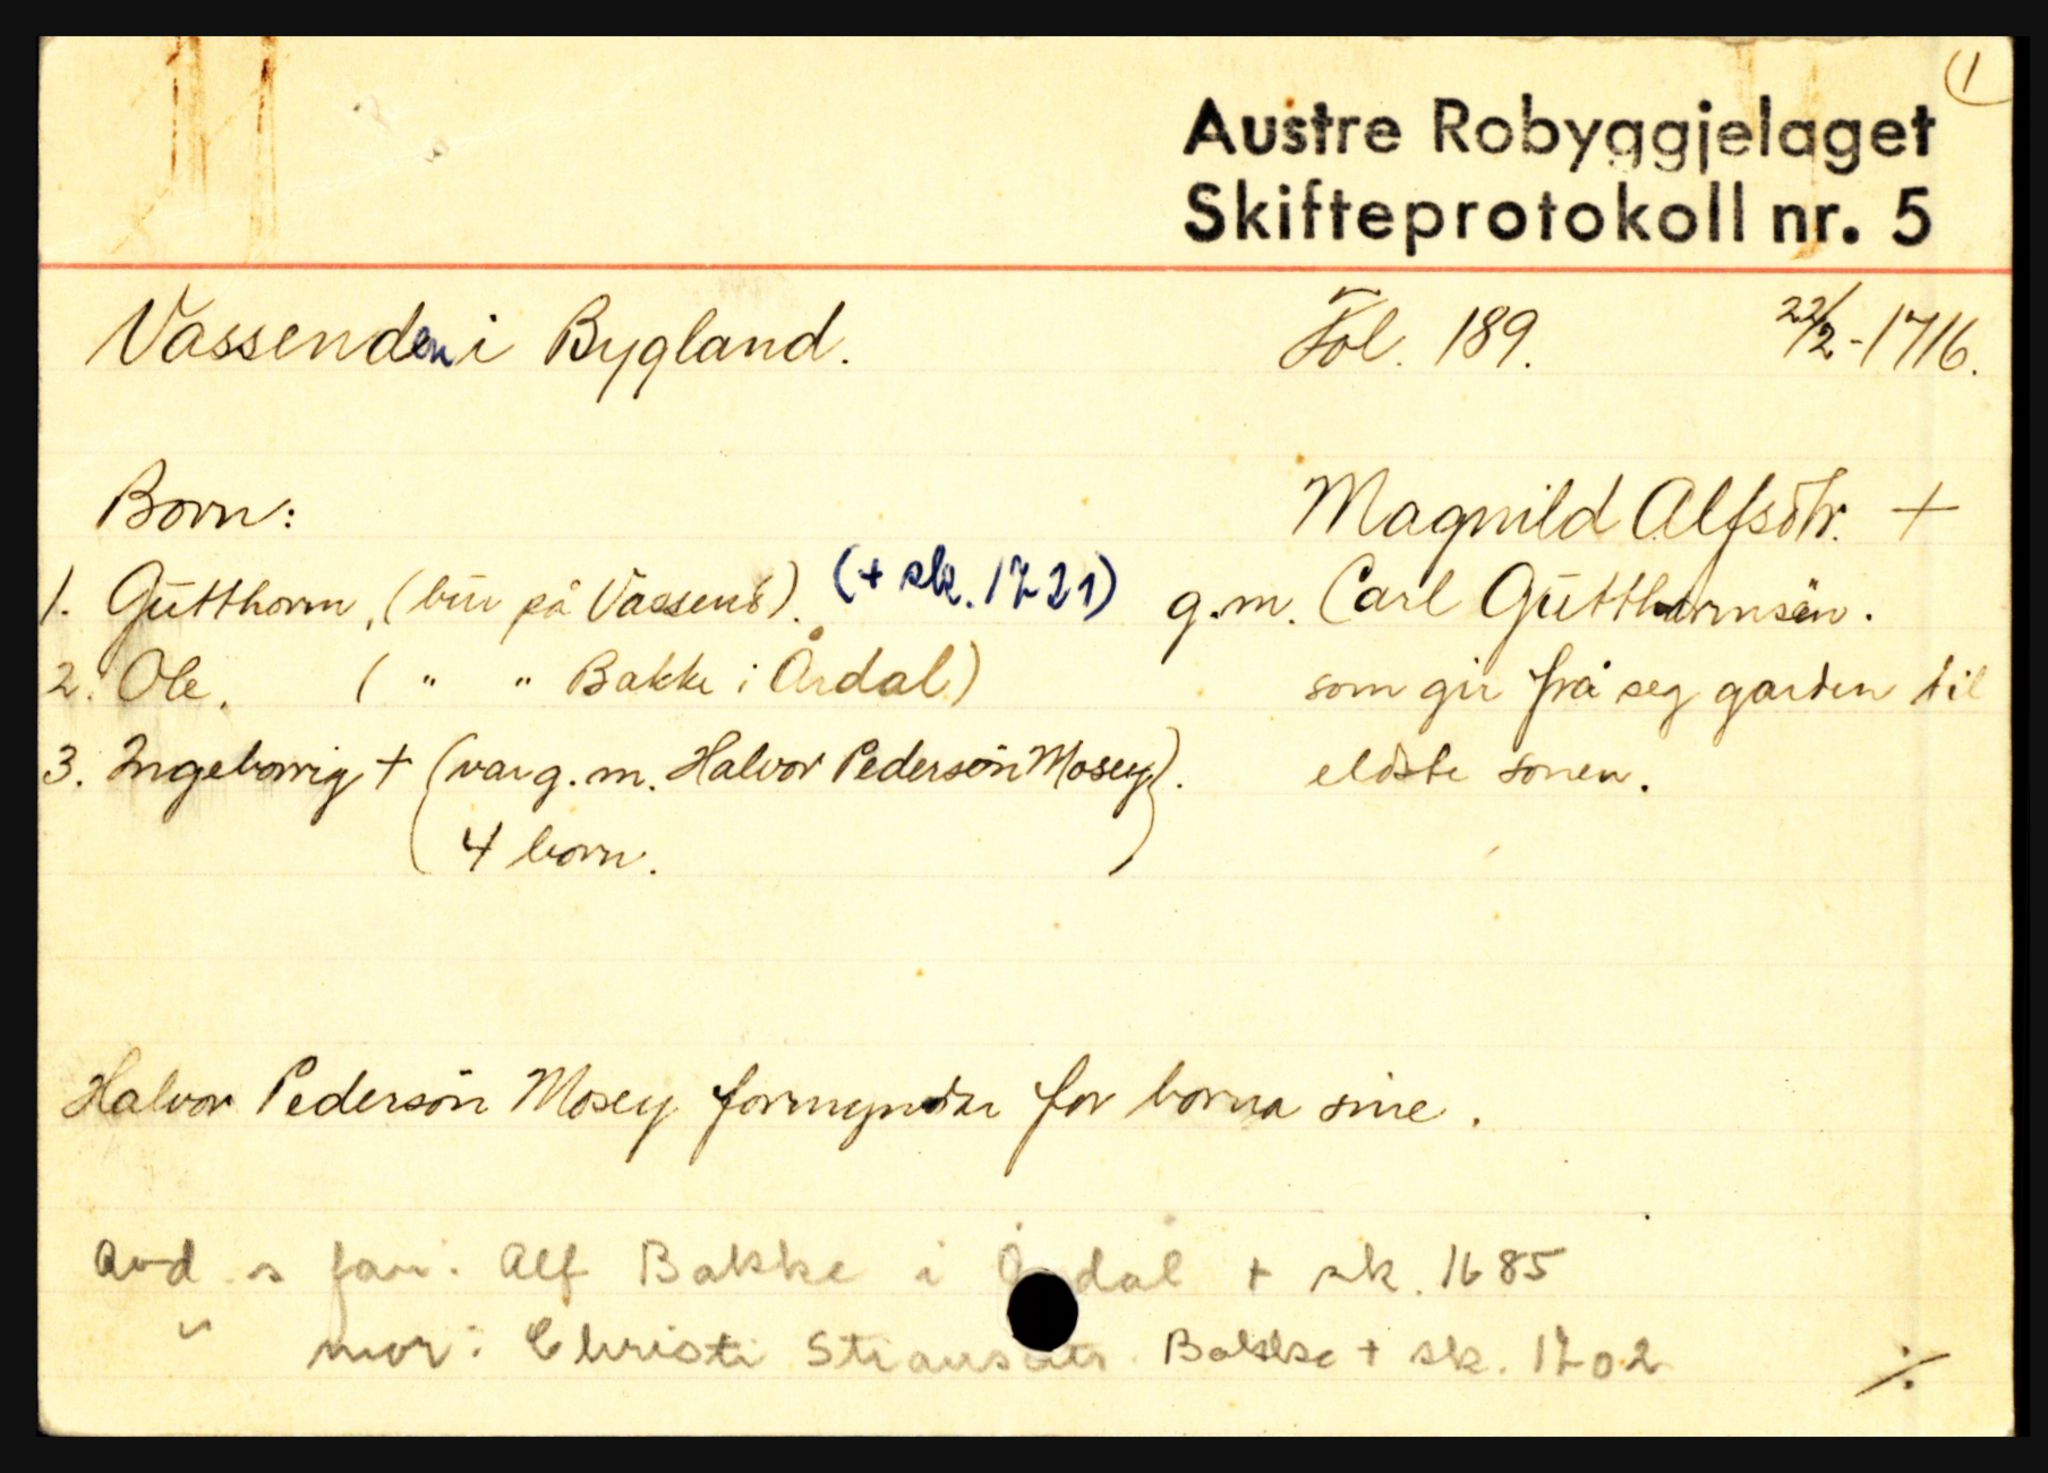 1
Austre Robyggjelaget
Skifteprotokoll nr. 5
Vassenden i Bygland. Fol. 189. 22/2-1716.
Born: Magnild Alfsdtr. +
1. Gutthorm, (bur på Vassend). (+ sk. 1721) g.m. Carl Gutthormsön.
2. Ole. ( " " Bakke i Årdal) som gir frå seg garden til
3. Ingeborrig + (var g.m. Halvor Pedersön Mosey). eldste sonen.
4 born.
Halvor Pedersön Mosey formyndar for borna sine.
Avd s far: Alf Bakke i Årdal + sk. 1685
" mor: Christi Bakke + sk. 1702